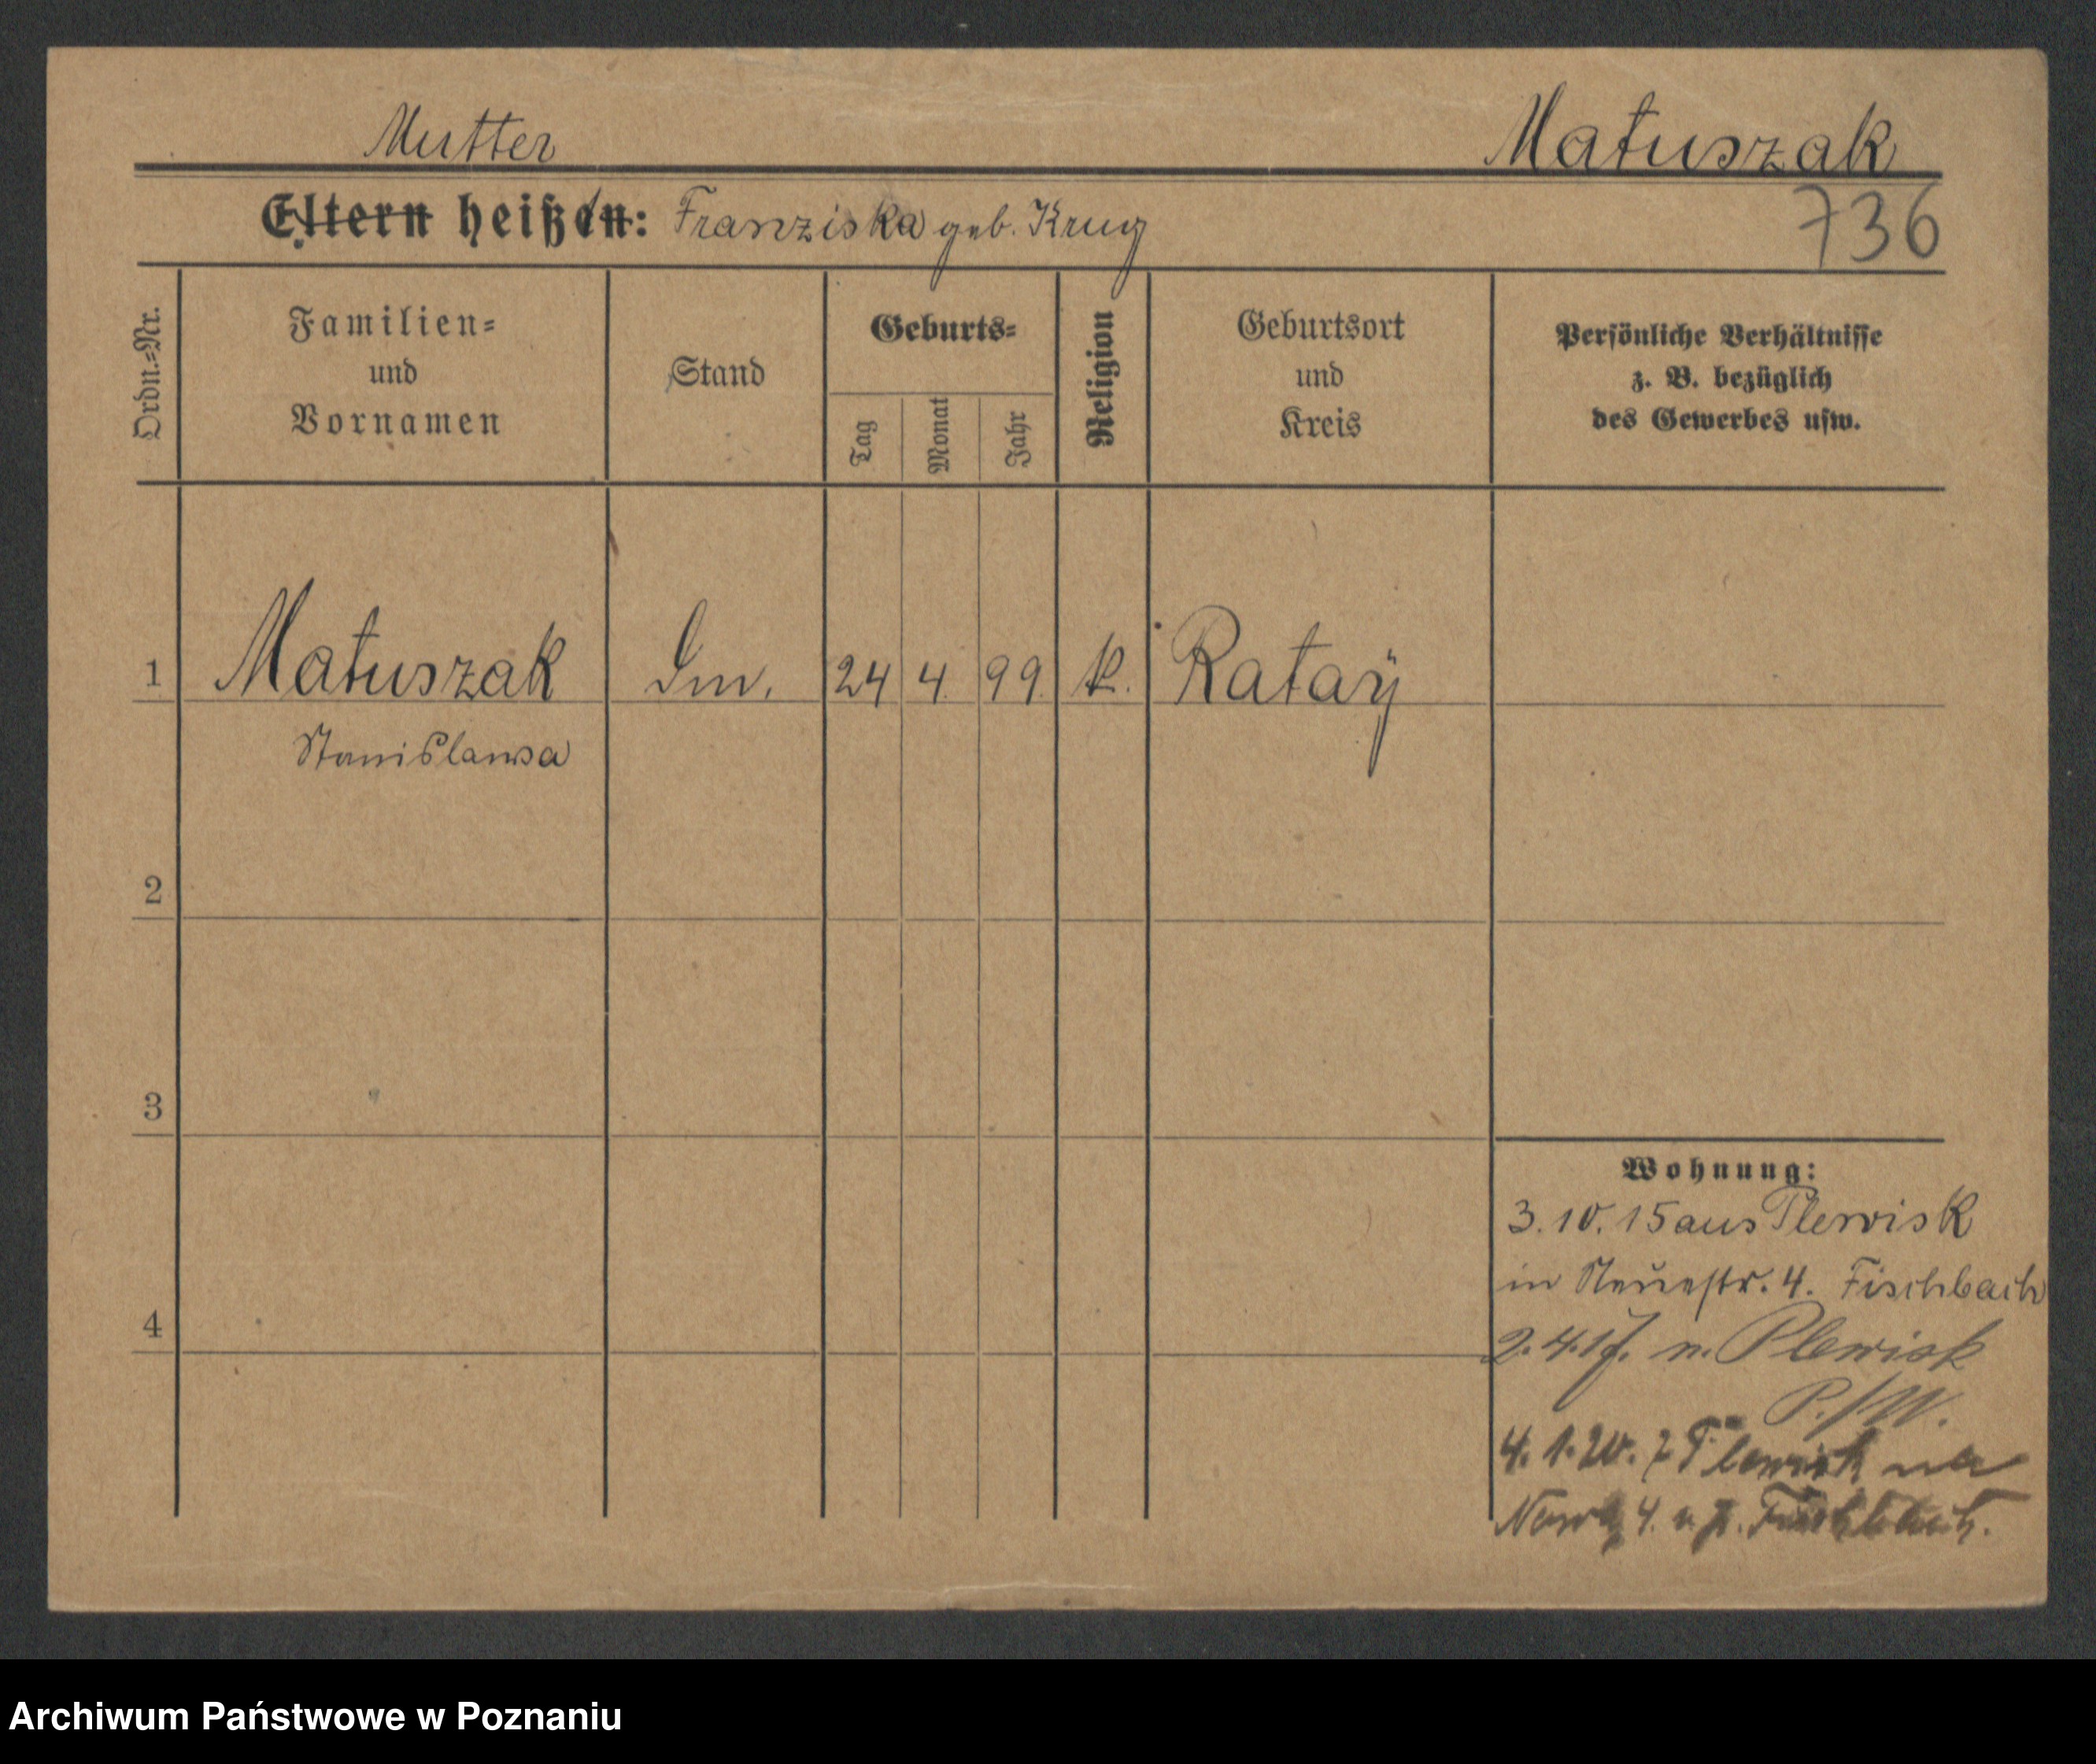 Mutter
Matuszak
Eltern heißen: Franziska geb. Krug
736
Ordn.-Nr.
Familien-
und
Vornamen
Stand
Geburts-
Tag
Monat
Jahr
Religion
Geburtsort
und
Kreis
Persönliche Verhältnisse
z. B. bezüglich
des Gewerbes usw.
1
Matuszak
24 4. 99. k. Ratay
Stanislawa
2
3
4
Wohnung:
3.10.15 aus Plewisk
in Neuestr. 4. Fischbach
2.4.17. n. Plewisk
4. 1. 20. z Plewisk na
4. Fischbach.
Archiwum Państwowe w Poznaniu